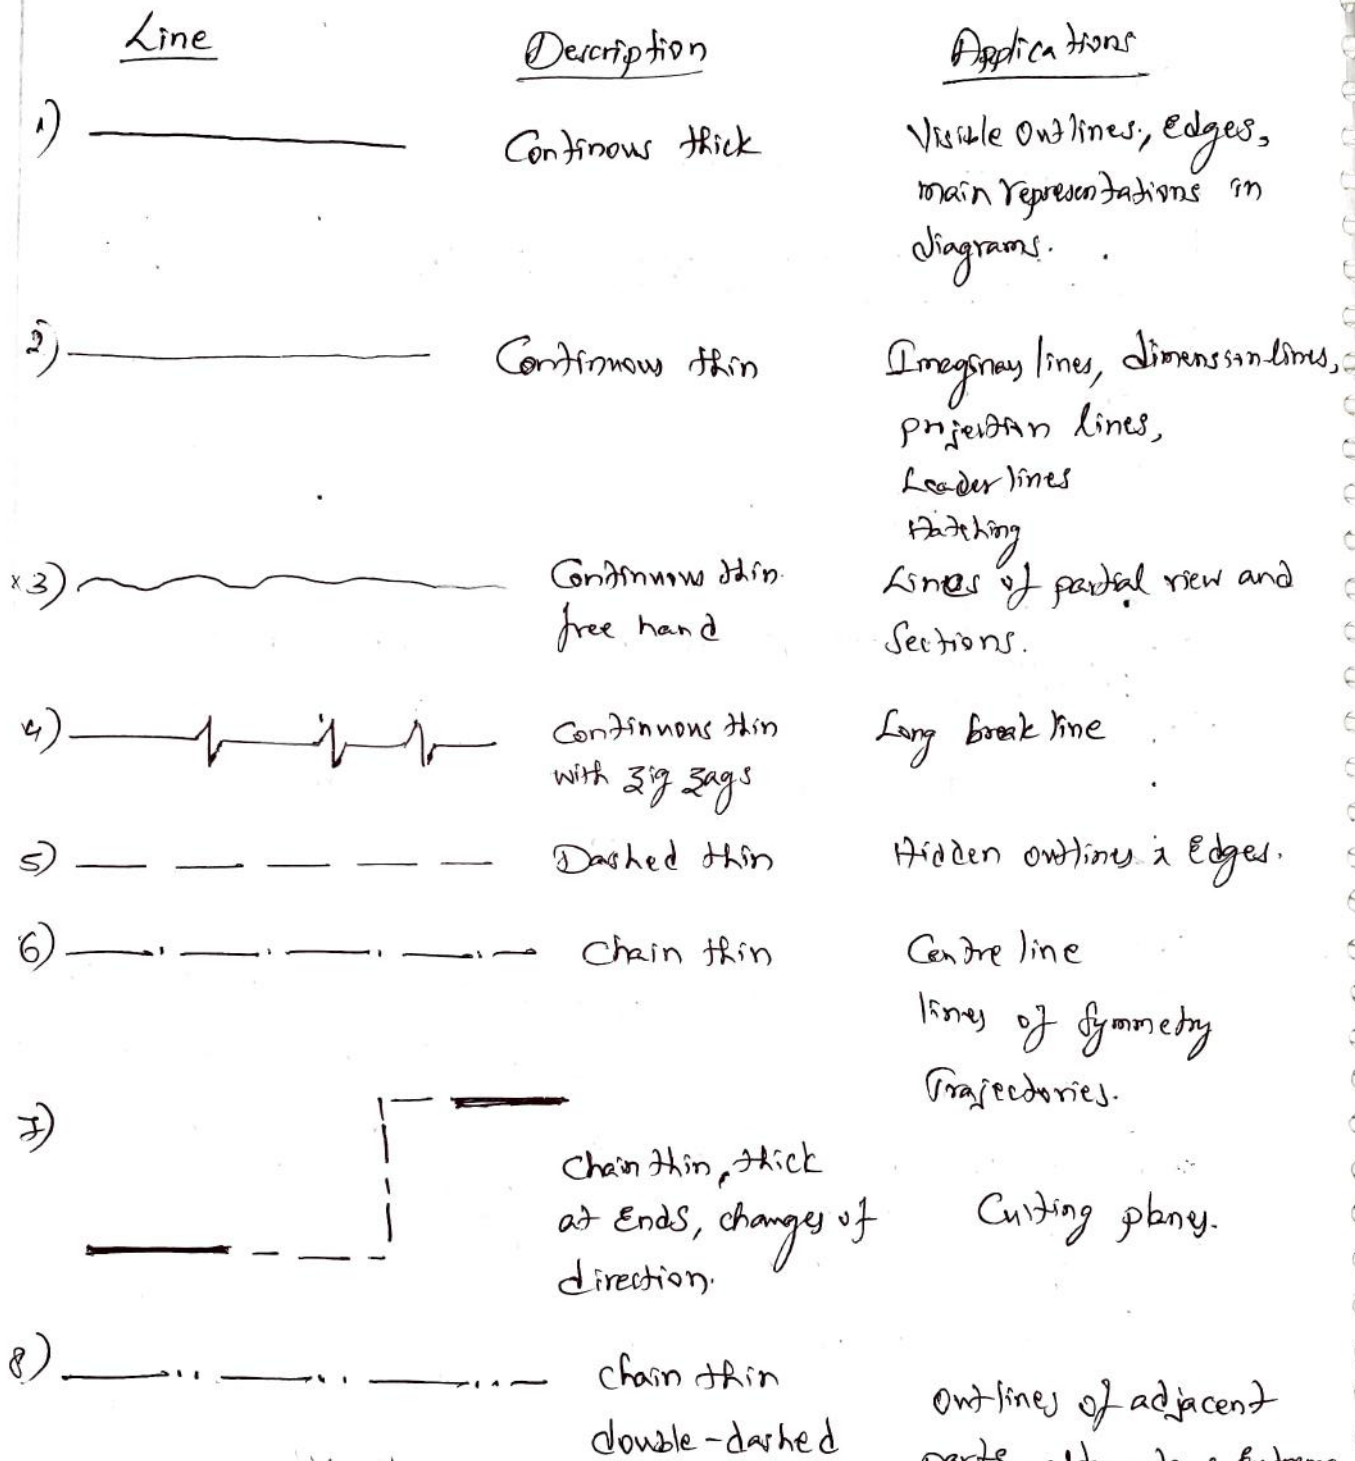 Line Description Applications
1) Continous thick Visible Outlines, edges,
main representations in
diagrams.
2) Continuous thin Imeginay lines, dimension lines,
projection lines,
Leader lines
Hatching
x 3) Continuous thin free hand Lines of partial view and
Sections.
4) Continuous thin with zig zags Long break line
5) Dashed thin Hidden outlines & Edges.
6) Chain thin Centre line
lines of Symmetry
Trajectories.
7) Chain thin, thick
at Ends, changes of Cutting planes.
direction.
8) chain thin
double-dashed
Outlines of adjacent
parts